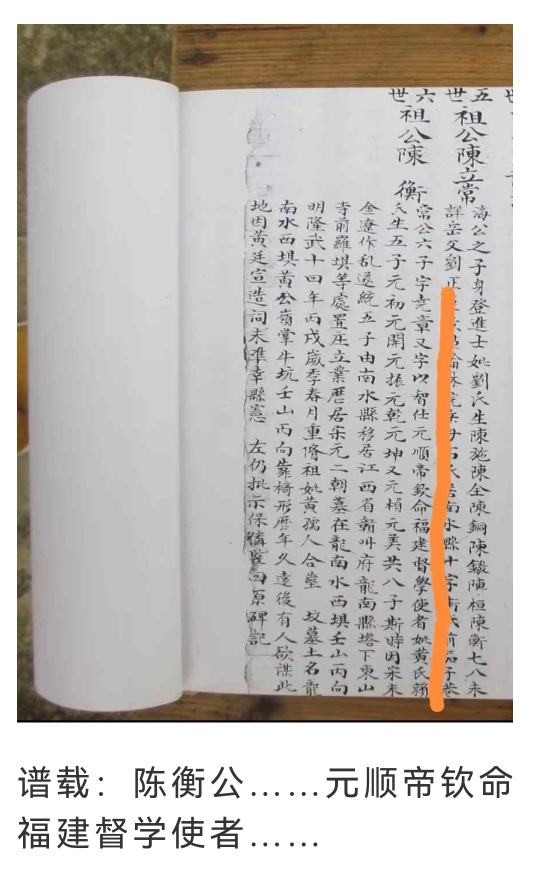 五世祖公陳立常
海公之子身登進士妣劉氏生陳施陳全陳銅陳鐵陳桓陳衡七八未
詳岳父劉
六世祖公陳衡
常公六子字堯章又字以智仕元順帝欽命福建督學使者妣黃氏賴
氏生五子元初元開元振元乾元坤又元楨元美共八子斯時因宋末
金遼作乱遂統五子由南水縣移居江西省贛州府龍南縣塔下東山
寺前羅垻等處置庄立業歷居宋元二朝墓在龍南水西垻壬山丙向
明隆武十四年丙戌歲季春月重脩祖妣黃孺人合塋 坟墓土名龍
南水西垻黃公嶺掌牛坑壬山丙向靠椅形歷年久遠後有人欲謀此
地因黃廷宣造詞未准幸縣憲 左仍批示保 回原碑記
谱载：陈衡公……元顺帝钦命
福建督学使者……